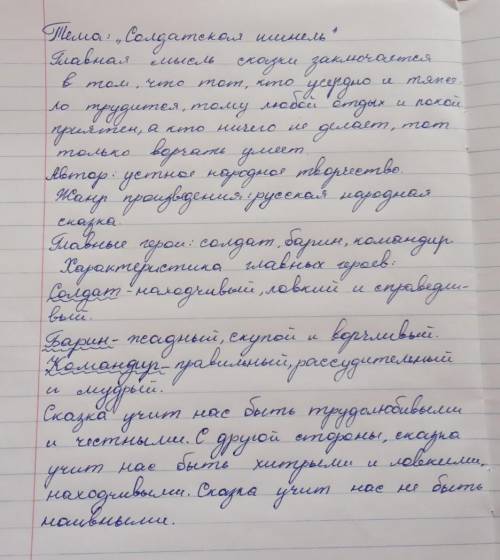 Тема: „Солдатская шинель"
Главная мысль сказки заключается
в том, что тот, кто усердно и тяже-
ло трудится, тому любой отдых и покой
приятен, а кто ничего не делает, тот
только ворчать умеет
Автор: устное народное творчество.
Жанр произведения: русская народная
сказка.
Главные герои: солдат, барин, командир
Характеристика главных героев:
Солдат - находчивый, ловкий и справедли-
вый.
Барин - жадный, скупой и ворчливый.
Командир - правильный, рассудительный
и мудрый.
Сказка учит нас быть трудолюбивыми
и честными. С другой стороны, сказка
учит нас быть хитрыми и ловкими,
находчивыми. Сказка учит нас не быть
наивными.